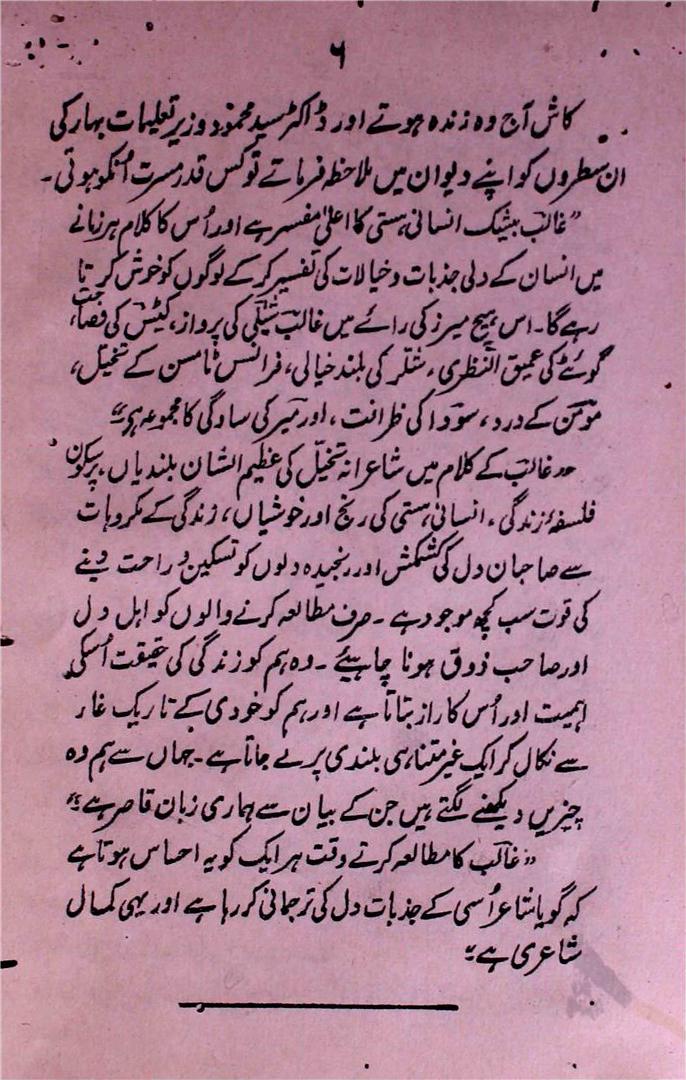 ۶
کاش آج وہ زندہ ہوتے اور ڈاکٹر سید محمود وزیر تعلیمات بہار کی
ان سطروں کو اپنے دیوان میں ملاحظہ فرماتے تو کس قدر مسرت اُنکو ہوتی۔
”غالب بیشک انسانی ہستی کا اعلیٰ مفسر ہے اور اُس کا کلام ہر زمانے
میں انسان کے دلی جذبات و خیالات کی تفسیر کر کے لوگوں کو خوش کرتا
رہے گا۔ اس ہیچ میرز کی رائے میں غالب شیلی کی پرواز، کیٹس کی فصاحت،
گوئٹے کی عمیق النظری، شلر کی بلند خیالی، فرانسس ٹامسن کے تخیل،
مومن کے درد، سودا کی ظرافت، اور میر کی سادگی کا مجموعہ ہی“
”غالب کے کلام میں شاعرانہ تخیل کی عظیم الشان بلندیاں، پرسکون
فلسفۂ زندگی، انسانی ہستی کی رنج اور خوشیاں، زندگی کے مکروہات
سے صاحبان دل کی کشمکش اور رنجیدہ دلوں کو تسکین و راحت دینے
کی قوت سب کچھ موجود ہے۔ صرف مطالعہ کرنے والوں کو اہل دل
اور صاحب ذوق ہونا چاہیئے۔ وہ ہم کو زندگی کی حقیقت اُسکی
اہمیت اور اُس کا راز بتاتا ہے اور ہم کو خودی کے تاریک غار
سے نکال کر ایک غیر متناہی بلندی پر لے جاتا ہے۔ جہاں سے ہم وہ
چیزیں دیکھنے لگتے ہیں جن کے بیان سے ہماری زبان قاصر ہے“
”غالب کا مطالعہ کرتے وقت ہر ایک کو یہ احساس ہوتا ہے
کہ گویا شاعر اُسی کے جذبات دل کی ترجمانی کر رہا ہے اور یہی کمال
شاعری ہے“